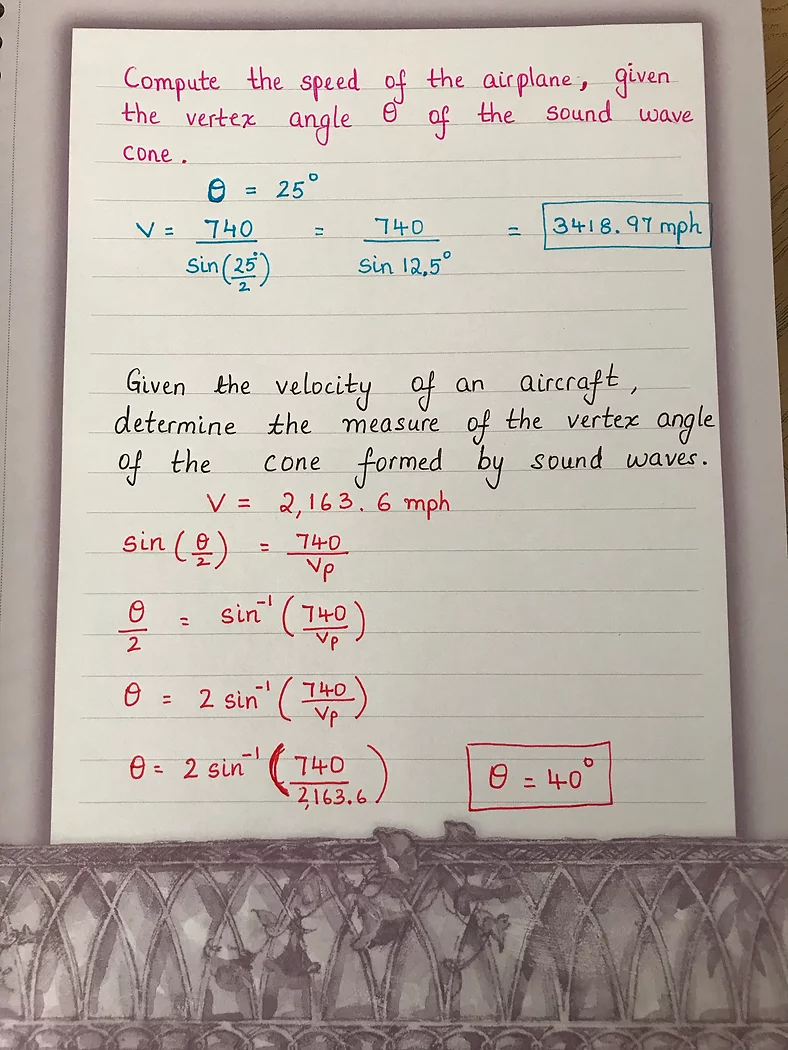 Compute the speed of the airplane, given
the vertex angle θ of the sound wave
cone.
θ = 25°
V = 740 / sin(25°/2) = 740 / sin 12.5° = 3418.97 mph
Given the velocity of an aircraft,
determine the measure of the vertex angle
of the cone formed by sound waves.
V = 2,163.6 mph
sin(θ/2) = 740/Vp
θ/2 = sin⁻¹(740/Vp)
θ = 2 sin⁻¹(740/Vp)
θ = 2 sin⁻¹(740/2,163.6) θ = 40°